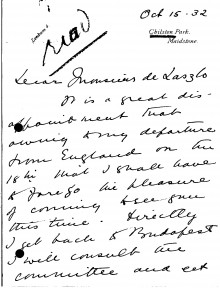 Oct 15-32
Chilston Park,
Maidstone.
Dear Monsieur de Laszlo
It is a great dis-
appointment that
owing to my departure
from England on the
18th that I shall have
to forego the pleasure
of coming to see you
this time. Directly
I get back to Budapest
I will consult the
committee and let